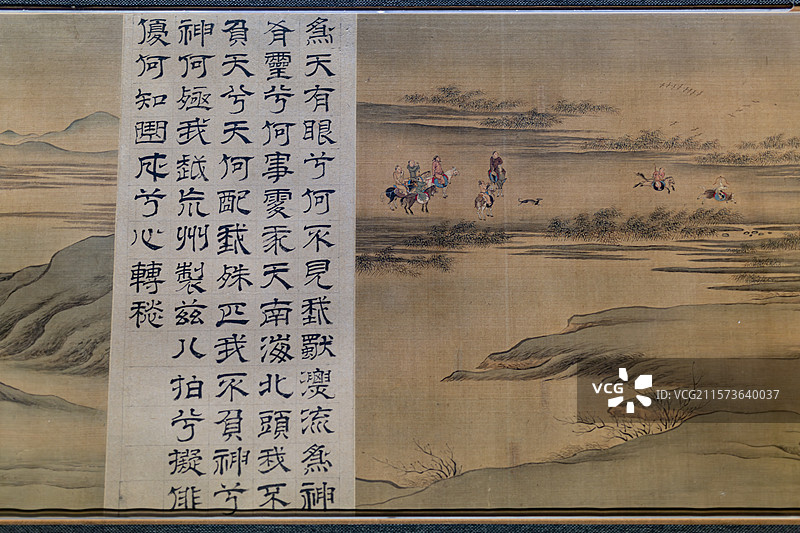 為天有眼兮何不見我獨漂流為神
有靈兮何事處我天南海北頭我不
負天兮天何配我殊匹我不負神兮
神何殛我越荒州製茲八拍兮擬俳
優何知曲成兮心轉愁
VCG
VCG ID: VCG211573640037